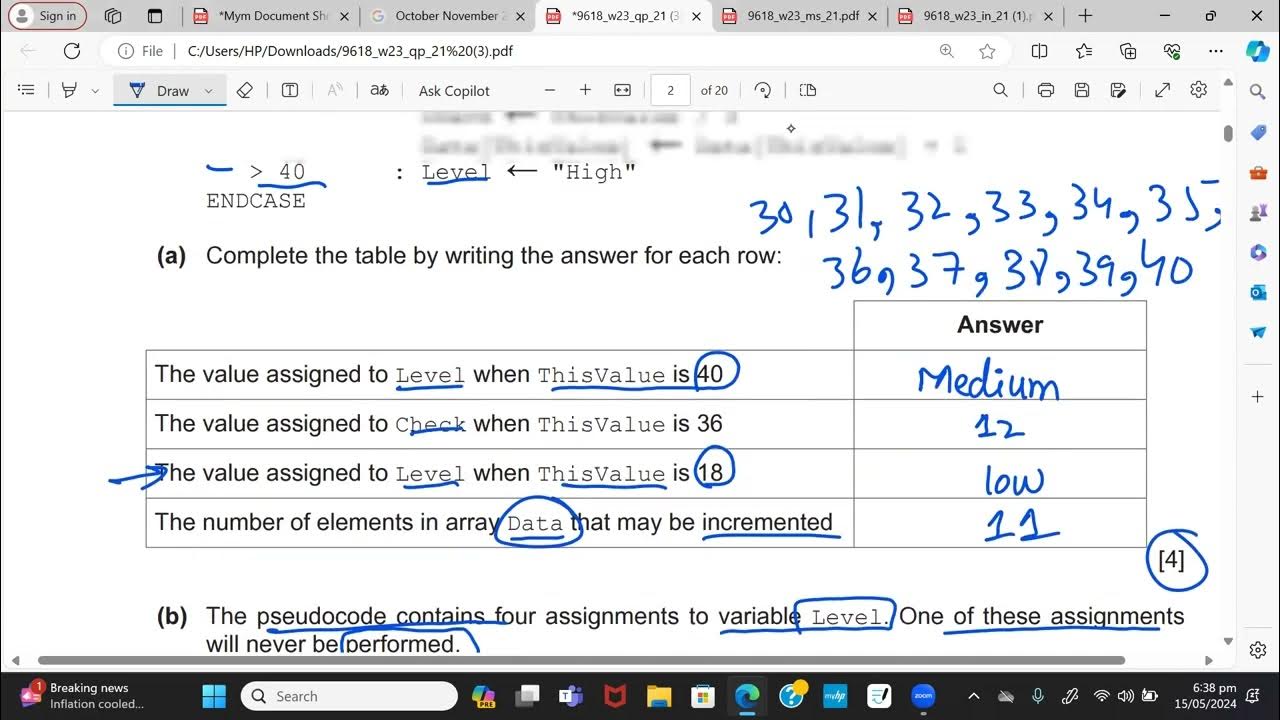 Sign in
*Mym Document Sh
October November 2
*9618_w23_qp_21 (3
9618_w23_ms_21.pdf
9618_w23_in_21 (1).p
File C:/Users/HP/Downloads/9618_w23_qp_21%20(3).pdf
Draw
Ask Copilot
2 of 20
> 40 : Level ← "High"
ENDCASE
30, 31, 32, 33, 34, 35,
36, 37, 38, 39, 40
(a) Complete the table by writing the answer for each row:
Answer
The value assigned to Level when ThisValue is 40 Medium
The value assigned to Check when ThisValue is 36 12
The value assigned to Level when ThisValue is 18 low
The number of elements in array Data that may be incremented 11
[4]
(b) The pseudocode contains four assignments to variable Level. One of these assignments
will never be performed.
1 Breaking news
Inflation cooled...
Search
PRE
myhp
zoom
6:38 pm
15/05/2024